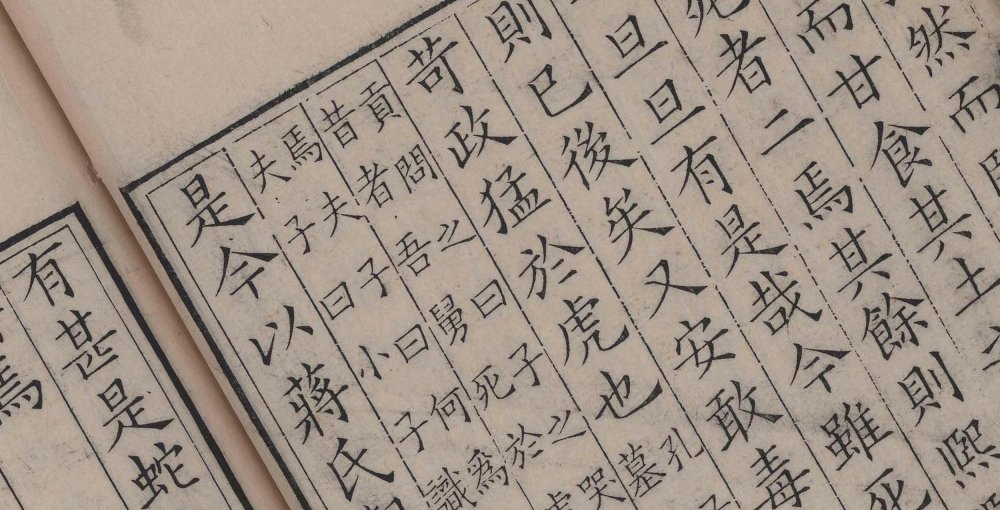 然而
而甘食其土
死者二焉其餘則熙
旦旦有是哉今雖死
則已後矣又安敢毒
苛政猛於虎也孔子
墓
貢問之曰子之哭
昔者吾舅死於虎
焉夫子曰何爲
夫子曰小子識
是今以蔣氏
有甚是蛇
焉